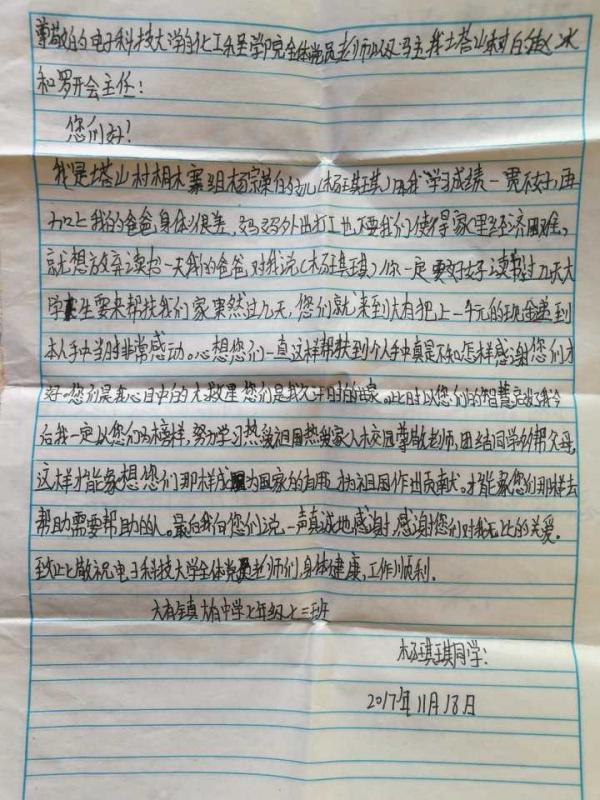 尊敬的电子科技大学的化工系学院全体党员老师以及冯主 塔山村的
和罗开会主任！
您们好！
我是塔山村桐木寨组杨宗 的女儿（杨琪琪）因我学习成绩一贯不好，再
加上我的爸爸身体很差，妈妈外出打工也不要我们使得家里经济困难。
就想放弃读书一天我的爸爸对我说（杨琪琪）你一定要好好读书过几天大
学生要来帮扶我们家果然过几天，您们就来到大有把上一千元的现金递到
本人手中当时非常感动。心想您们一直这样帮扶到个人手中真是不知怎样感谢您们才
好。您们是我心目中的大救星您们是我 的 此时以您们的智慧启发我今
后我一定以您们为榜样，努力学习热爱祖国热爱家人 校园尊敬老师，团结同学 帮父母，
这样才能象想您们那样成为国家的有用 为祖国作出贡南犬，才能象您们那样去
帮助需要帮助的人。最后我向您们说一声真诚地感谢，感谢您们对我无比的关爱。
至此敬祝电子科技大学全体党员老师们，身体健康，工作顺利。
大有镇大有中学七年级七三班
杨琪琪同学：
2017年11月18日